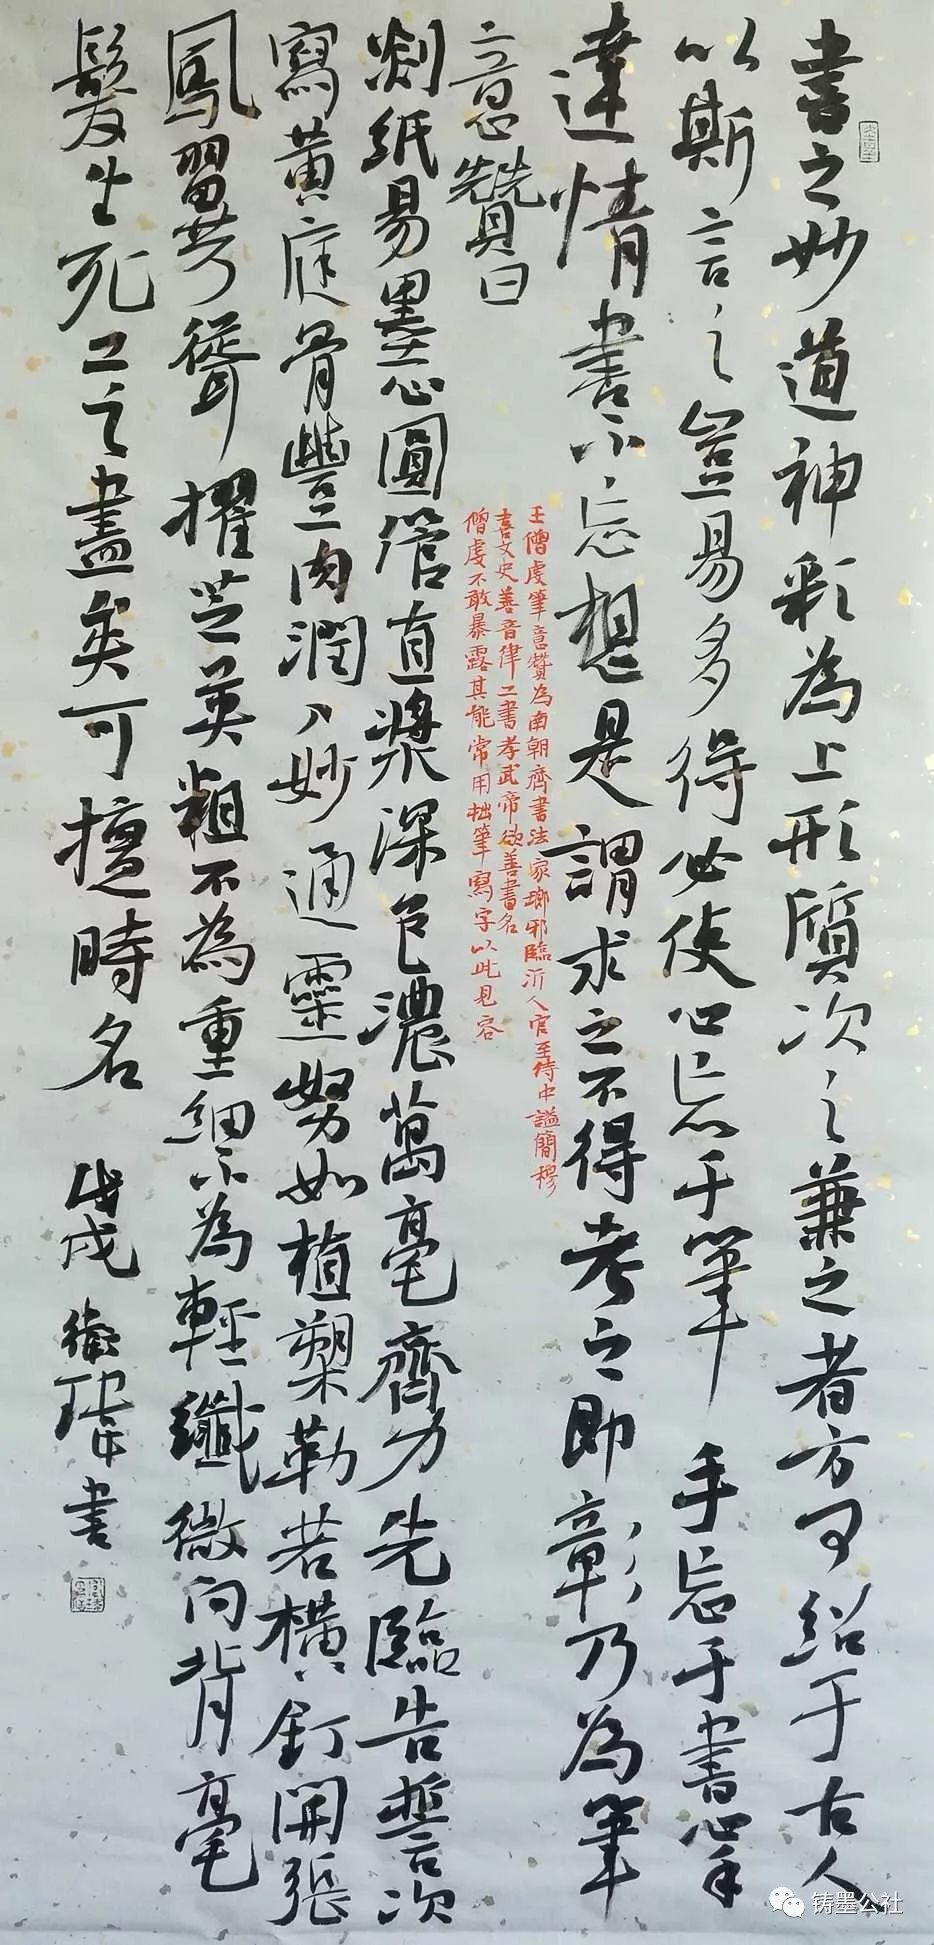 書之妙道神彩為上形質次之兼之者方可紹于古人
以斯言之豈易多得必使心忘于筆手忘于書心手
達情書不忘想是謂求之不得考之即彰乃為筆
意贊曰
剡紙易墨心圓管直漿深色濃萬毫齊力先臨告誓次
寫黃庭骨豐肉潤入妙通靈努如植槊勒若橫釘開張
鳳翼聳擢芝英粗不為重細不為輕纖微向背毫
髮生死工之盡矣可擅時名
戊戌
書
王僧虔筆意贊為南朝齊書法家瑯邪臨沂人官至侍中謚簡穆
喜文史善音律工書孝武帝欲善書名
僧虔不敢暴露其能常用拙筆寫字以此見容
铸墨公社